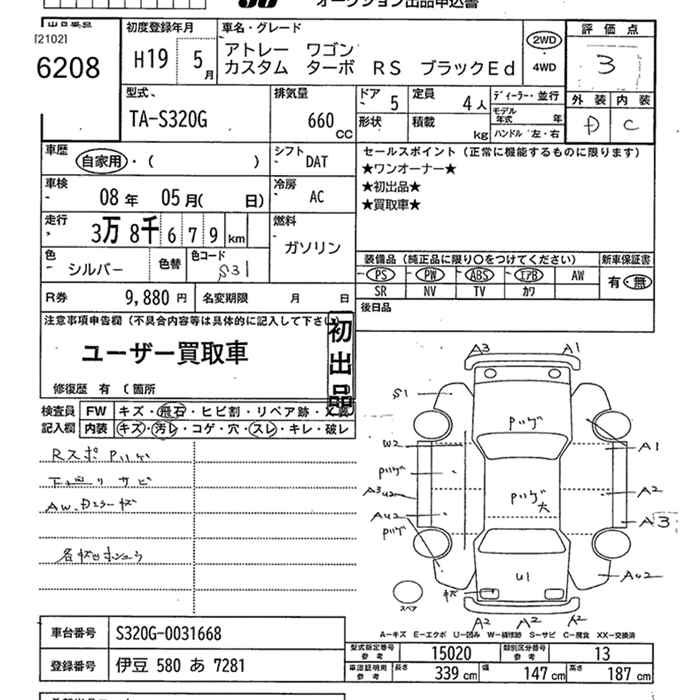 オークション出品申込書
出品番号
[2102]
6208
初度登録年月
H19 5月
車名・グレード
アトレー ワゴン
カスタム ターボ RS ブラックEd
2WD
・
4WD
評価点
3
外装 内装
D C
型式
TA-S320G
排気量
660
CC
ドア 5
形状
定員 4人
積載 kg
ディーラー・並行
モデル年式 年
ハンドル 左・右
車歴
自家用・( )
シフト
DAT
車検
08年 05月( 日)
冷房
AC
走行
3万 8千 6 7 9 km
燃料
ガソリン
色
シルバー
色替
色コード
S31
R券 9,880円
名変期限 月 日
セールスポイント(正常に機能するものに限ります)
★ワンオーナー★
★初出品★
★買取車★
装備品(純正品に限り○をつけてください)
新車保証書
PS PW ABS エアB AW
有・無
SR NV TV カワ
後日品
注意事項申告欄(不具合内容等は具体的に記入して下さい)
ユーザー買取車
初出品
修復歴 有 (箇所
検査員
記入欄
FW キズ・飛石・ヒビ割・リペア跡・
内装 キズ・汚レ・コゲ・穴・スレ・キレ・破レ
Rスポ Pハゲ
下廻リ サビ
AW.
A3 A1
S1
Pハゲ
W2
A1
Pハゲ
A3 U2
Pハゲ大
A2
AU2
A3
Pハゲ
U1
AU2
スペア
A2 A2 A2
A-キズ E-エクボ U-凹み W-補修跡 S-サビ C-腐食 XX-交換済
車台番号 S320G-0031668
登録番号 伊豆 580 あ 7281
型式指定番号 参考 15020
類別区分番号 参考 13
車検証明用 参考 長さ 339 cm 幅 147 cm 高さ 187 cm